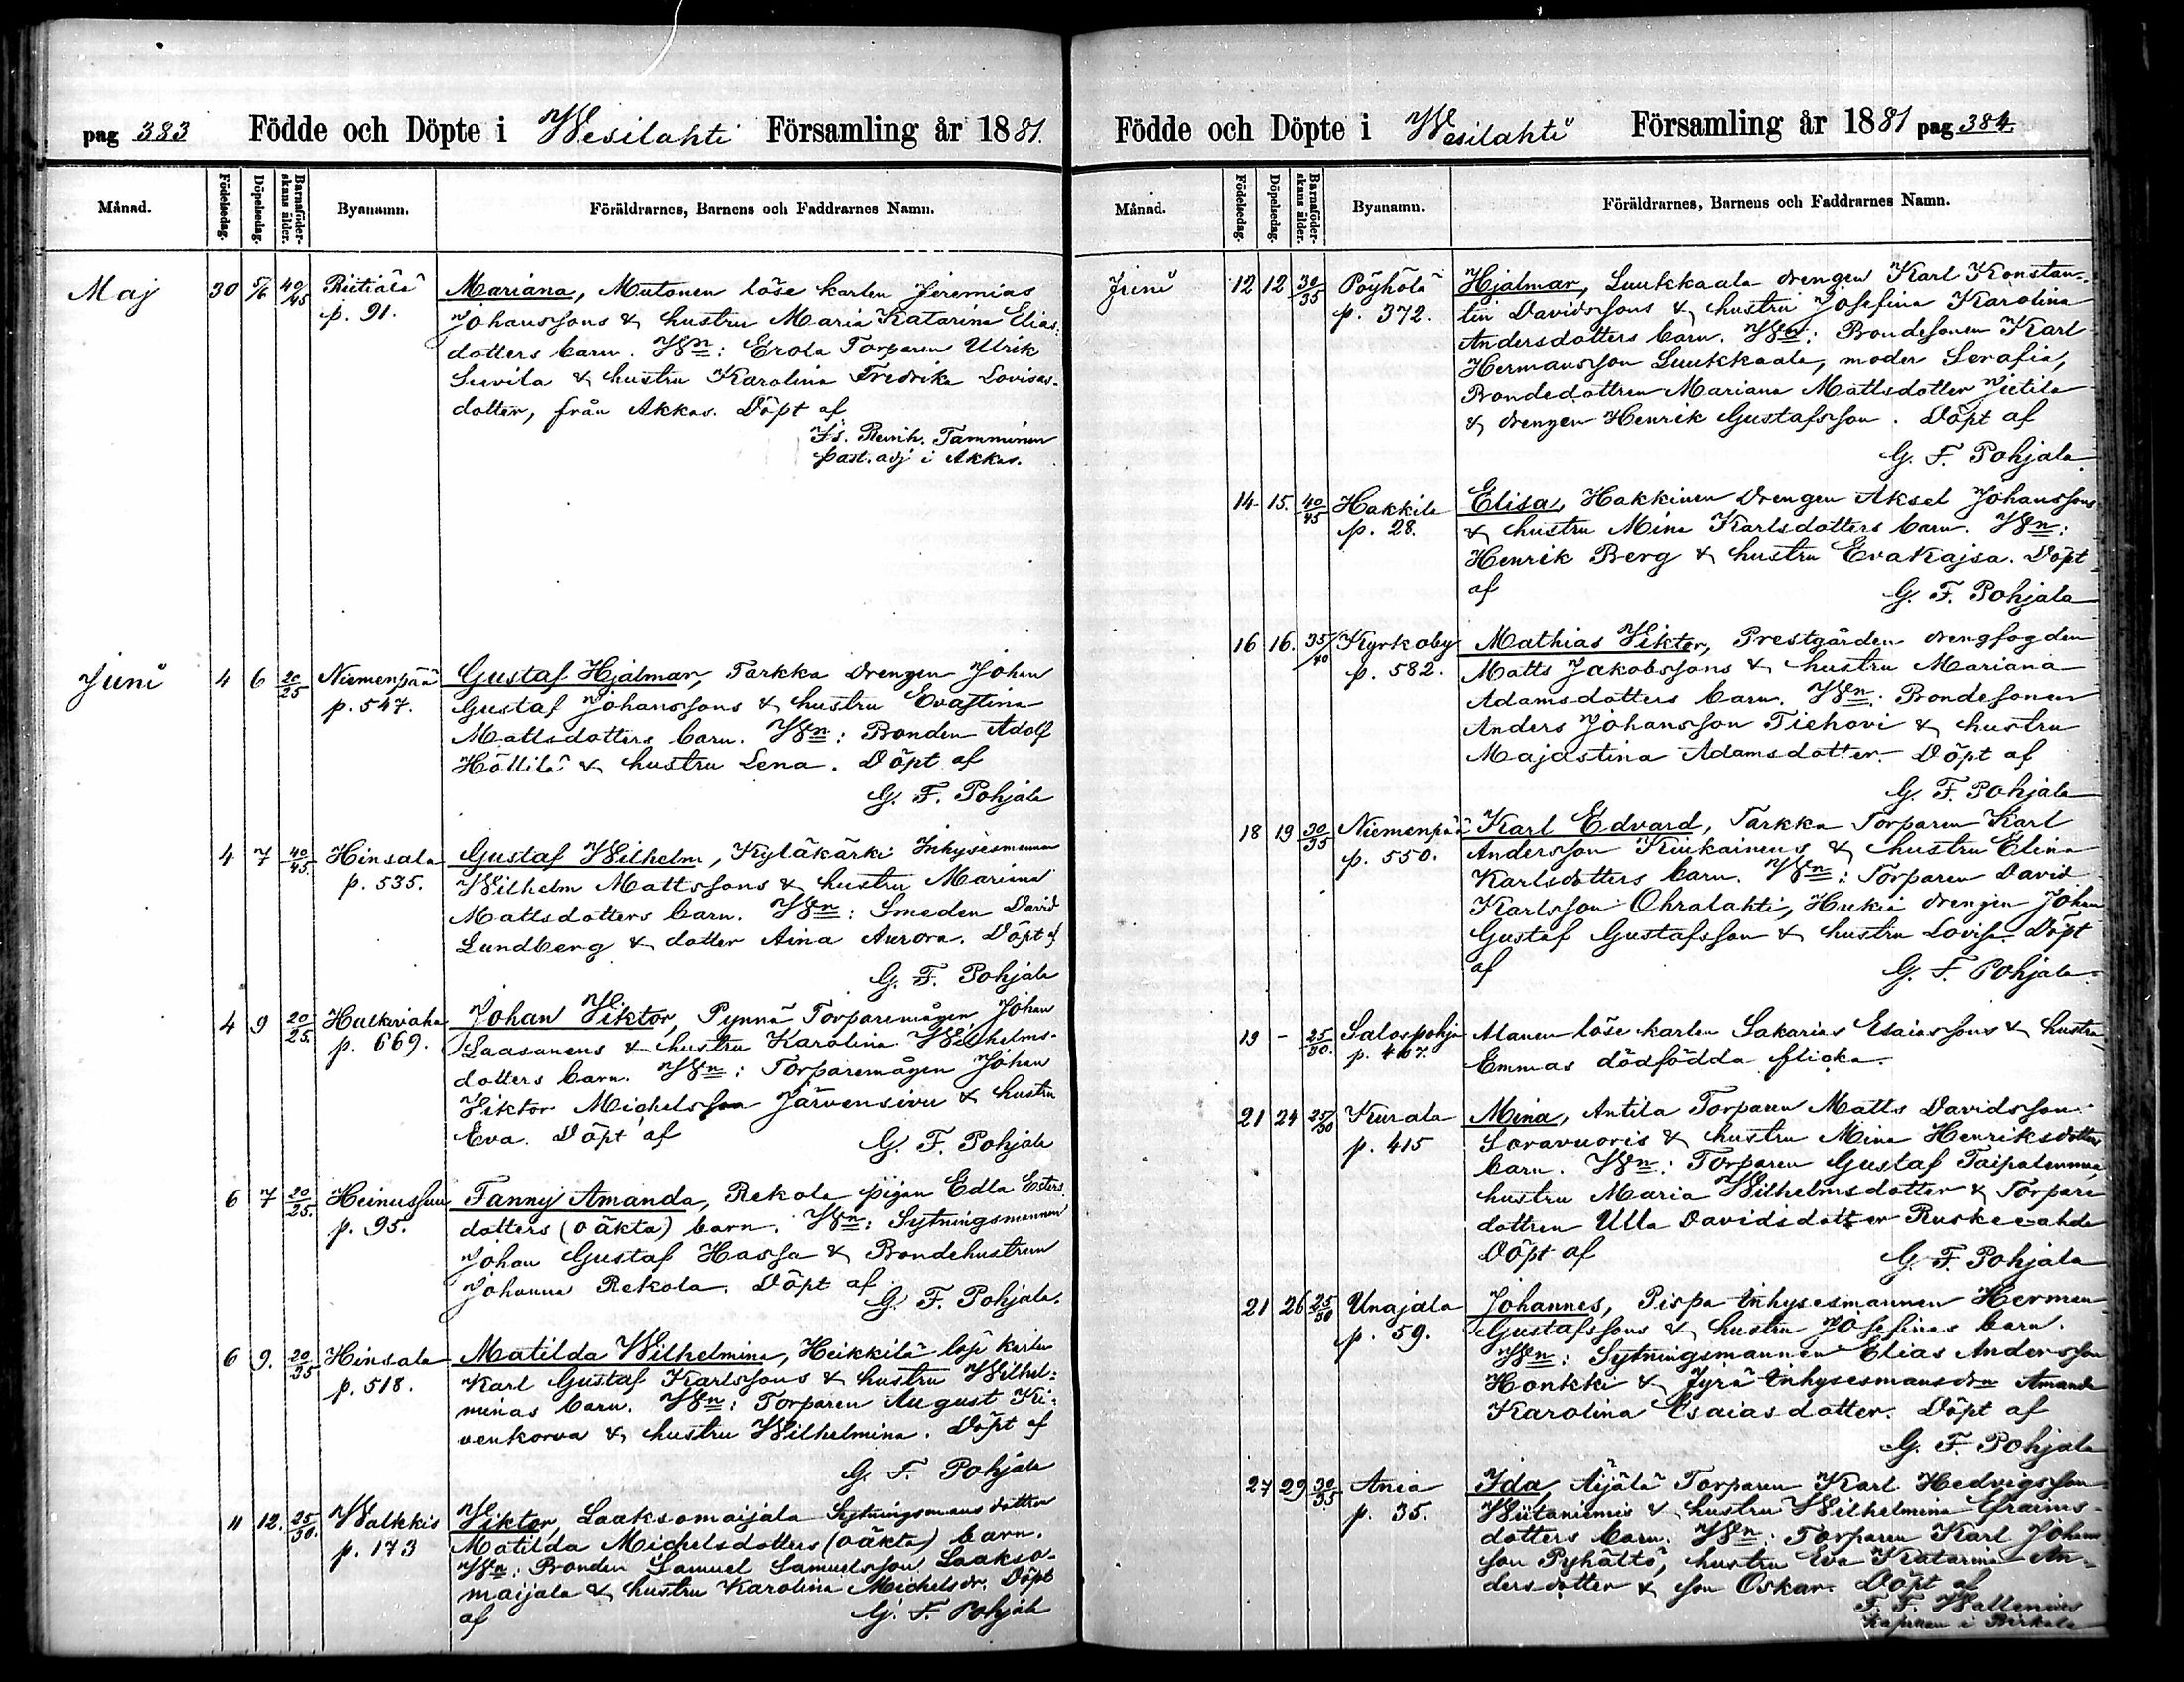 pag 383 Födde och Döpte i Wesilahti Församling år 1881.
Månad. Födelsedag. Döpelsedag. Barnaföderskans ålder. Byanamn. Föräldrarnes, Barnens och Faddrarnes Namn.
Maj 30 5/6 40/45 Riitiälä Mariana, Mutonen löse karlen Jeremias
p. 91. Johanssons & hustru Maria Katarina Elias-
dotters barn. Wn: Erola Torparen Ulrik
& hustru Karolina Fredrika Lovisas-
dotter, från Akkas. Döpt af
Fs. Reinh. Tamminen
past. adj i Akkas.
Juni 4 6 20/25 Niemenpää Gustaf Hjalmar, Tarkka drengen Johan
p. 547. Gustaf Johanssons & hustru Evastina
Mattsdotters barn. Wn: Bonden Adolf
Höllilä & hustru Lena. Döpt af
G. F. Pohjala
4 7 40/45. Hinsala Gustaf Wilhelm, Kyläkärki Inhysesmannen
p. 535. Wilhelm Mattssons & hustru Mariana
Mattsdotters barn. Wn: Smeden David
Lundberg & dotter Aina Aurora. Döpt af
G. F. Pohjala
4 9 20/25. Hulkeriaha Johan Viktor, Pynnä Torparemågen Johan
p. 669. Laasanens & hustru Karolina Wilhelms-
dotters barn. Wn: Torparemågen Johan
Viktor Michelsson Järvensivu & hustru
Eva. Döpt af G. F. Pohjala
6 7 20/25. Heinusuu Fanny Amanda, Rekola pigan Edla Esters
p. 95. dotters (oäkta) barn. Wn: Sytningsmannen
Johan Gustaf Hassa & Bondehustrun
Johanna Rekola. Döpt af
G. F. Pohjala.
6 9. 20/35 Hinsala Matilda Wilhelmina, Heikkilä löse karlen
p. 518. Karl Gustaf Karlssons & hustru Wilhel-
minas barn. Wn: Torparen August Ki-
venkorva & hustru Wilhelmina. Döpt af
G. F. Pohjala
11 12. 25/30. Walkkis Viktor, Laaksomaijala Sytningsmans dotter
p. 173 Matilda Michelsdotters (oäkta) barn.
Wn: Bonden Samuel Samuelsson Laakso-
maijala & hustru Karolina Michelsdr. Döpt
af G. F. Pohjala
Födde och Döpte i Wesilahti Församling år 1881 pag 384.
Månad. Födelsedag. Döpelsedag. Barnaföderskans ålder. Byanamn. Föräldrarnes, Barnens och Faddrarnes Namn.
Juni 12 12 30/35 Pöyhölä Hjalmar, Luukkaala drengen Karl Konstan-
p. 372. tin Davidssons & hustru Josefina Karolina
Andersdotters barn. Wn: Bondesonen Karl
Hermansson Luukkaala, moder Serafia,
Bondedottren Mariana Mattsdotter Jietila
& drengen Henrik Gustafsson. Döpt af
G. F. Pohjala
14 15. 40/45 Hakkila Elisa, Hakkinen drengen Aksel Johanssons
p. 28. & hustru Mina Karlsdotters barn. Wn:
Henrik Berg & hustru Eva Kajsa. Döpt
af G. F. Pohjala
16 16. 35/40 Kyrkoby Mathias Viktor, Prestgården drengfogden
p. 582. Matts Jakobssons & hustru Mariana
Adamsdotters barn. Wn. Bondesonen
Anders Johansson Tiehovi & hustru
Majastina Adamsdotter. Döpt af
G. F. Pohjala
18 19 30/35 Niemenpää Karl Edvard, Tarkka Torparen Karl
p. 550. Andersson Kiukainens & hustru Elina
Karlsdotters barn. Wn: Torparen David
Karlsson Ohralahti, Hukia drengen Johan
Gustaf Gustafsson & hustru Lovisa. Döpt
af G. F. Pohjala
19 - 25/30. Salospohja Alanen löse karlen Sakarias Esaiassons & hustru
p. 467. Emmas dödfödda flicka.
21 24 25/30 Kurala Mina, Antila Torparen Matts Davidsson
p. 415 Soravuoris & hustru Mina Henriksdotters
barn. Wn: Torparen Gustaf Taipalenmaa,
hustru Maria Wilhelmsdotter & Torpare
dottren Ulla Davidsdotter Ruskeeahde
Döpt af G. F. Pohjala
21 26 25/30 Unajala Johannes, Pispa Inhysesmannen Herman
p. 59. Gustafssons & hustru Josefinas barn.
Wn: Sytningsmannen Elias Andersson
Honkki & Jyrä Inhysesmansdrn Amanda
Karolina Esaiasdotter. Döpt af
G. F. Pohjala
27 29 30/35 Ania Ida, Äijälä Torparen Karl Hedvigsson
p. 35. Wiitaniemis & hustru Wilhelmina Efraims-
dotters barn. Wn: Torparen Karl Johans
son Pyhältö, hustru Eva Katarina An-
dersdotter & son Oskar. Döpt af
F. F. Wallenius
Kapellan i Birkala